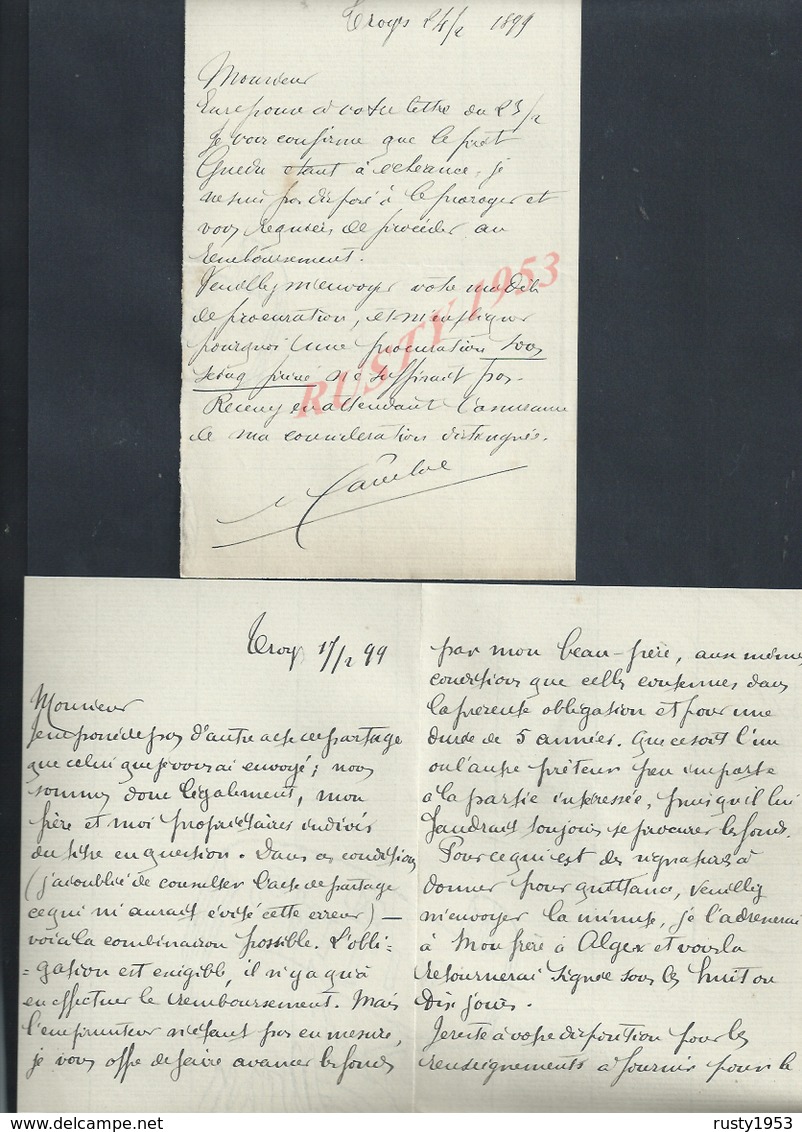 Troyes 24/2 1899
Monsieur
En reponse à votre lettre du 23/2
je vous confirme que le prêt
Guedu etant à echeance, je
ne suis pas disposé à le proroger et
vous requiers de procéder au
remboursement.
Veuillez m'envoyer votre modèle
de procuration, et m'expliquer
pourquoi une procuration sous
seing privé ne suffirait pas.
Recevez en attendant l'assurance
de ma consideration distinguée.
RUSTY 1953
Troyes 17/2 99
Monsieur
Je ne possède pas d'autre acte de partage
que celui que je vous ai envoyé; nous
sommes donc légalement, mon
frère et moi propriétaires indivis
du titre en question. Dans ces conditions
(j'ai oublié de consulter l'acte de partage
ce qui m'aurait évité cette erreur) —
voici la combinaison possible. L'obli-
-gation est exigible, il n'y a qu'à
en effectuer le remboursement. Mais
l'emprunteur n'étant pas en mesure,
je vous offre de faire avancer les fonds
par mon beau-frère, aux mêmes
conditions que celles contenues dans
la présente obligation et pour une
durée de 5 années. Que ce soit l'un
ou l'autre prêteur peu importe
à la partie intéressée, puisqu'il lui
faudrait toujours se procurer les fonds.
Pour ce qui est des signatures à
donner pour quittance, veuillez
m'envoyer la minute, je l'adresserai
à mon frère à Alger et vous la
retournerai signée sous les huit ou
dix jours.
Je reste à votre disposition pour les
renseignements à fournir pour le
rusty1953